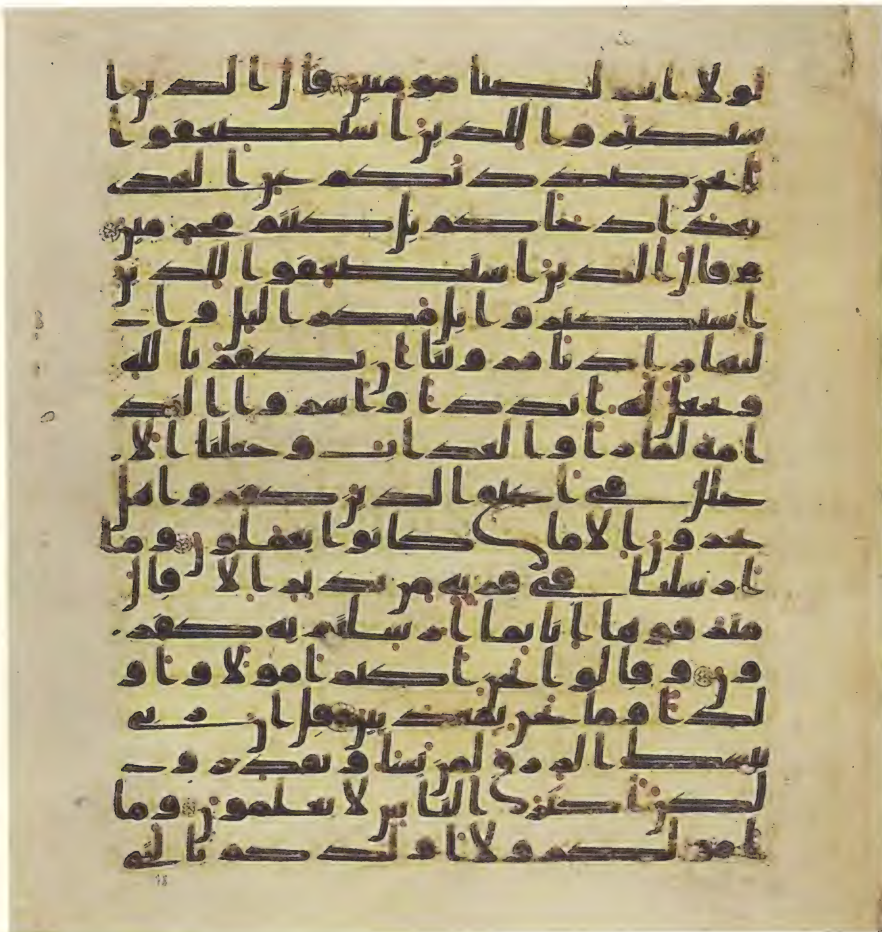 لولا انتم لكنا مومنين قال الذين ا
ستكبروا للذين استضعفوا
انحن صددنكم عن الهدى
بعد اذ جاكم بل كنتم مجرمين
وقال الذين استضعفوا للذين
استكبروا بل مكر اليل وا
لنهار اذ تامروننا ان نكفر بالله
ونجعل له اندادا واسروا الند
امة لما راوا العذاب وجعلنا الا
غلل في اعناق الذين كفروا هل
يجزون الا ما كانوا يعملون وما
ارسلنا في قرية من نذير الا قال
مترفوها انا بما ارسلتم به كفر
ون وقالوا نحن اكثر امولا واو
لدا وما نحن بمعذبين قل ان ربي
يبسط الرزق لمن يشا ويقدر و
لكن اكثر الناس لا يعلمون وما
امولكم ولا اولدكم بالتي